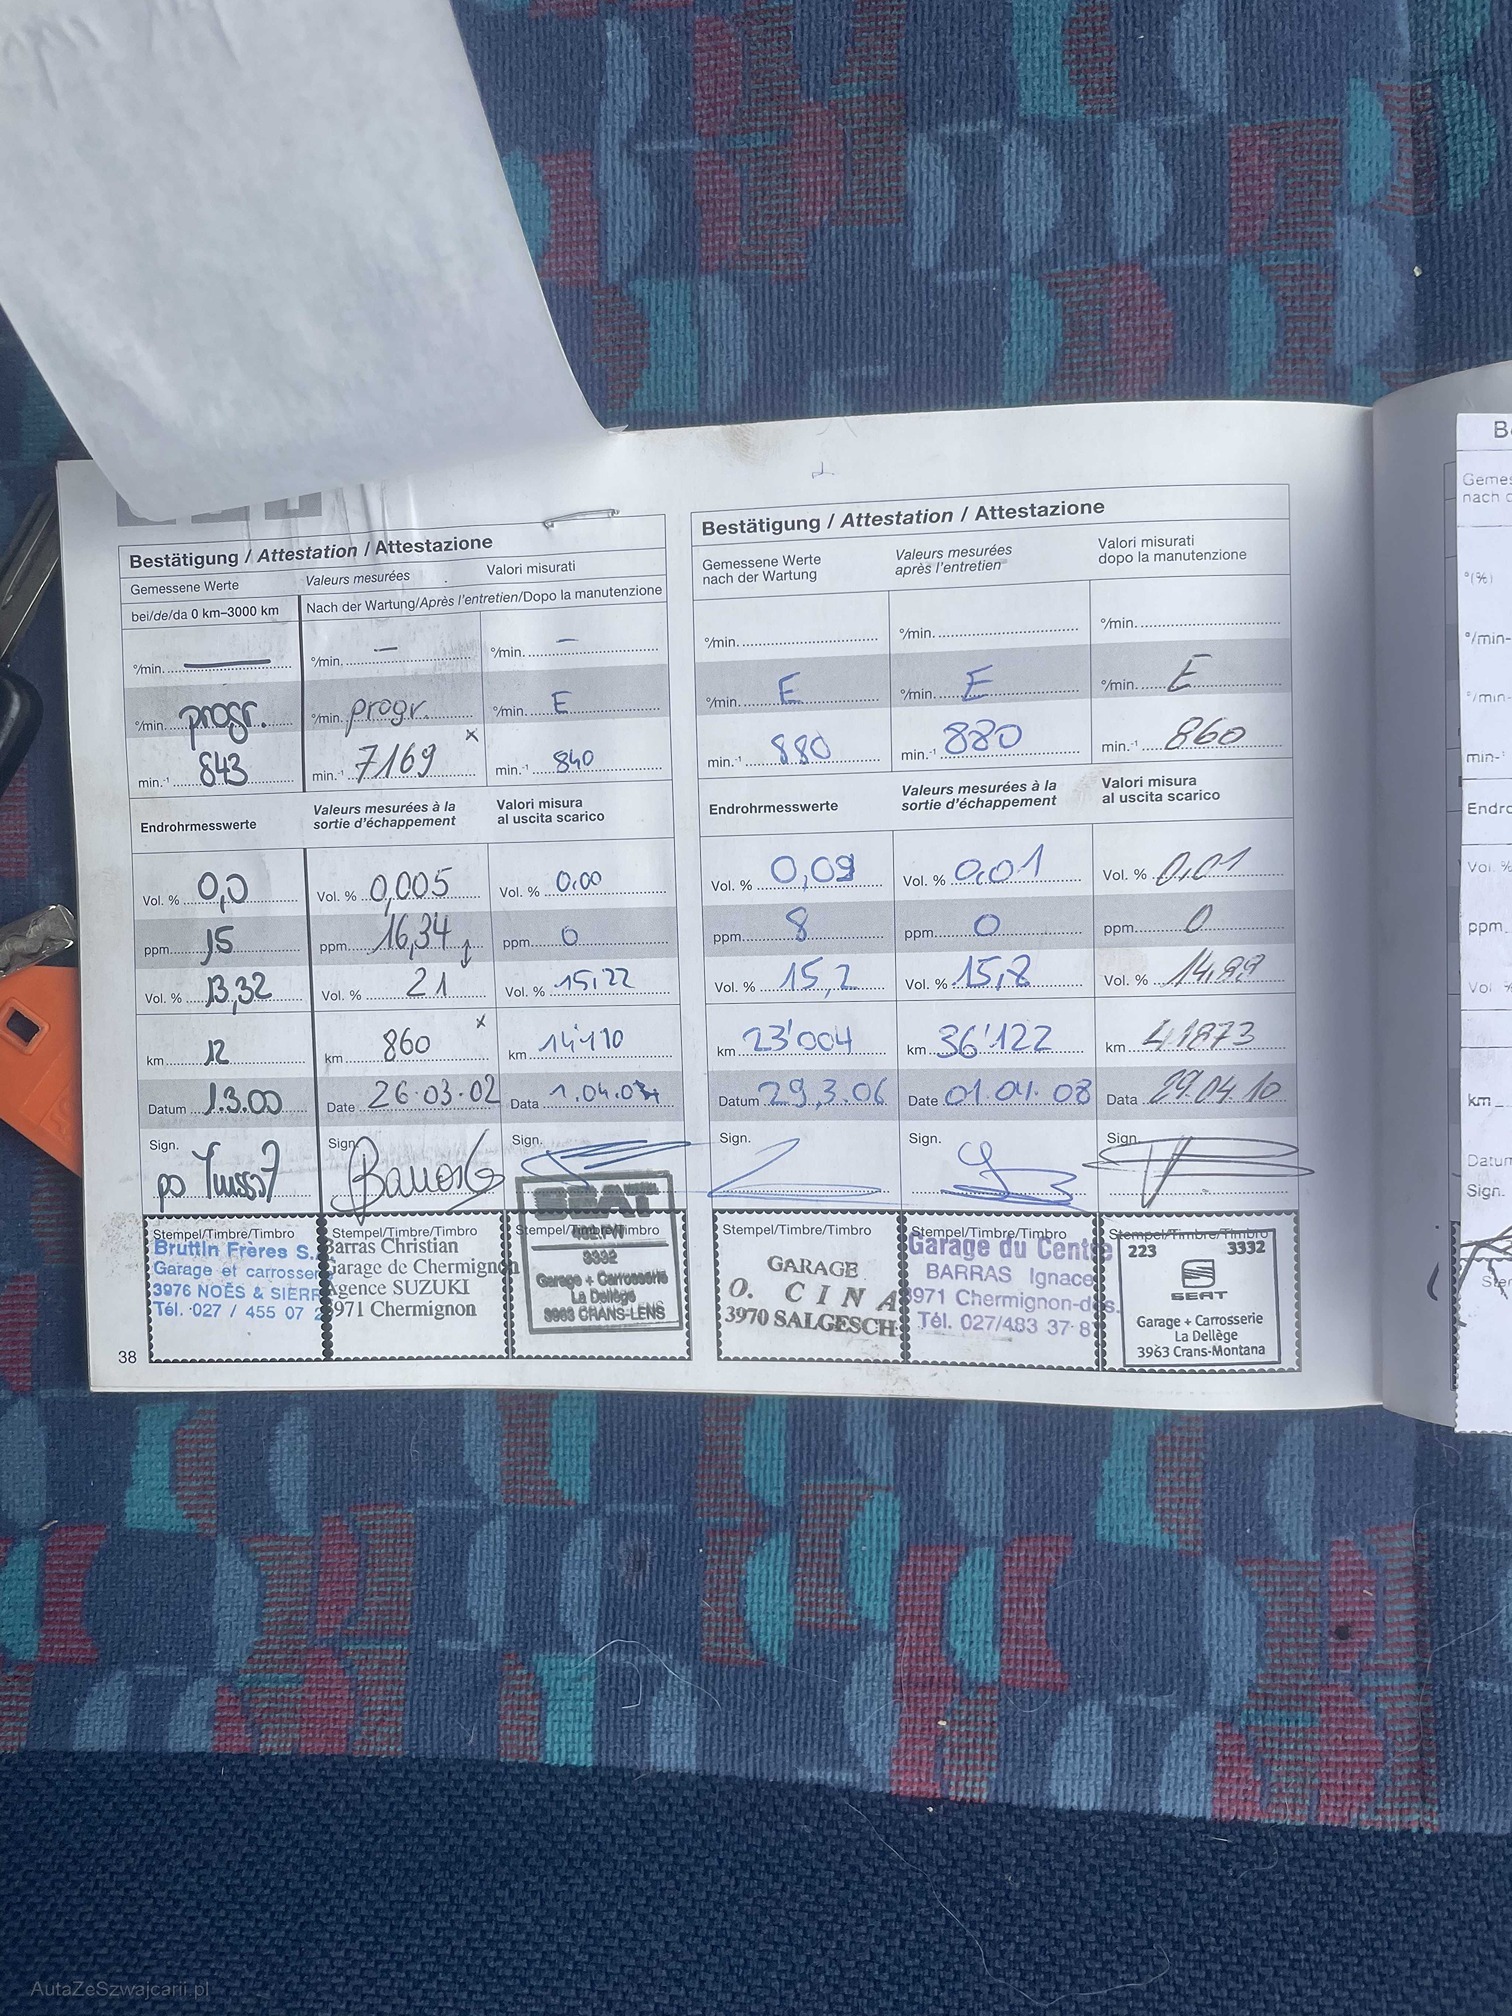 Bestätigung / Attestation / Attestazione
Gemessene Werte Valeurs mesurées Valori misurati
bei/de/da 0 km–3000 km Nach der Wartung/Après l'entretien/Dopo la manutenzione
°/min. — °/min. — °/min. —
°/min. progr. °/min. progr. °/min. E
min.-1 843 min.-1 7169 x min.-1 840
Endrohrmesswerte Valeurs mesurées à la sortie d'échappement Valori misura al uscita scarico
Vol. % 0,0 Vol. % 0,005 Vol. % 0.00
ppm 15 ppm 16,34 ppm 0
Vol. % 13,32 Vol. % 21 Vol. % 15,22
km 12 km 860 x km 14'110
Datum 1.3.00 Date 26.03.02 Data 1.04.04
Sign. Sign. Sign.
po
Stempel/Timbre/Timbro Stempel/Timbre/Timbro
Bruttin Frères S.
Garage et carrosser
3976 NOËS & SIERR
Tél. 027 / 455 07 2
Barras Christian
Garage de Chermignon
Agence SUZUKI
3971 Chermignon
SEAT
3332
Garage + Carrosserie
La Dellège
3963 CRANS-LENS
38
Bestätigung / Attestation / Attestazione
Gemessene Werte nach der Wartung Valeurs mesurées après l'entretien Valori misurati dopo la manutenzione
°/min. °/min. °/min.
°/min. E °/min. E °/min. E
min.-1 880 min.-1 880 min.-1 860
Endrohrmesswerte Valeurs mesurées à la sortie d'échappement Valori misura al uscita scarico
Vol. % 0,09 Vol. % 0,01 Vol. % 0,01
ppm 8 ppm 0 ppm 0
Vol. % 15,2 Vol. % 15,8 Vol. % 14,99
km 23'004 km 36'122 km 41873
Datum 29.3.06 Date 01.04.08 Data 29.04.10
Sign. Sign. Sign.
Stempel/Timbre/Timbro Stempel/Timbre/Timbro Stempel/Timbre/Timbro
GARAGE
O. CINA
3970 SALGESCH
Garage du Centre
BARRAS Ignace
3971 Chermignon-d
Tél. 027/483 37 8
223 3332
SEAT
Garage + Carrosserie
La Dellège
3963 Crans-Montana
Gemes
nach d
°(%)
°/min-
°/min-
min-
Endro
Vol %
ppm
Vol %
km
Datum
Sign.
Ster
AutaZeSzwajcarii.pl